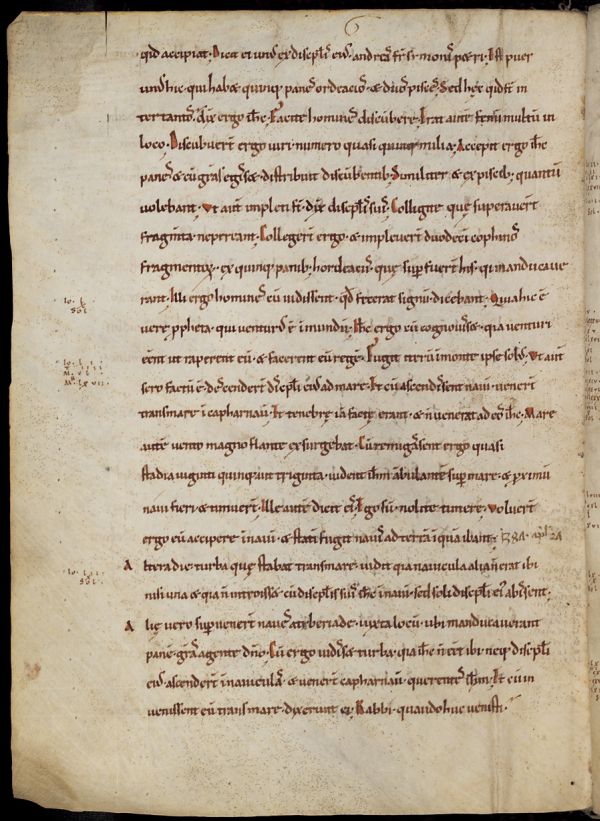 qid accipiat. Dicit ei unus ex discipl'is eius andreas fr̄ simonis petri. Est puer
unus hic qui habet quinq; panes ordeacios & duos pisces. Sed hęc quid st̄ int
ter tantos. Dix̄ ergo ihc. Facite homines discūbere. Erat autē fenū multū in
loco. Discubuer̄t ergo uiri numero quasi quinq; milia. Accepit ergo ihc
panes & cū gr̄as egisset distribuit discūbentib; Similiter & ex piscib; quantū
uolebant. Vt aut̄ impleti st̄. dix̄ discipl'is suis. Colligite quę superauer̄t
fragm̄ta ne pereant. Collegert̄ ergo. & impleuer̄t duodeci cophinos
fragmentoꝝ. ex quinq; panib; hordeaciis. quę supfuer̄t his. qui manducaue
rant. Illi ergo homines cū uidissent. qd̄ fecerat signū. dicebant. Quia hic ē
uere ppheta. qui uenturus ē in mundū. Ihc ergo cū cognouisset. quia uenturi
eēnt ut raperent eū. & facerent eū regē. Fugit iterū ī monte ipse solus. Vt aut̄
sero factū ē. descender̄t discpl'i eius ad mare. Et cū ascendissent naui. uener̄t
trans mare ī capharnaū. Et tenebrę iā factę erant. & n̄ uenerat ad eos ihc. Mare
autē uento magno flante exsurgebat. Cū remigassent ergo quasi
stadia uiginti quinq; aut triginta. uident ihm ābulantē sup mare. & pximū
naui fieri. & timuer̄t. Ille autē dicit eis. Ego sū. nolite timere. Voluer̄t
ergo eū accipere ī naui. & statī fugit nauis ad terrā ī quā ibant.
Altera die turba quę stabat trans mare. uidit quia nauicula alia n̄ erat ibi
nisi una. & quia n̄ introisset cū discipl'is suis ihc ī nauī. sed soli discipl'i ei' abissent.
Alię uero supuener̄t naues a tiberiade. iuxta locū. ubi manducauerant
panē. gr̄as agente dn̄o. Cū ergo uidisset turba. quia ihc n̄ eet̄ ibi. neq; discipl'i
eius ascender̄t in nauiculas. & uener̄t capharnaū. querentes ihm. Et cū in
uenissent eū trans mare. dixerunt ei. Rabbi. quando huc uenisti.